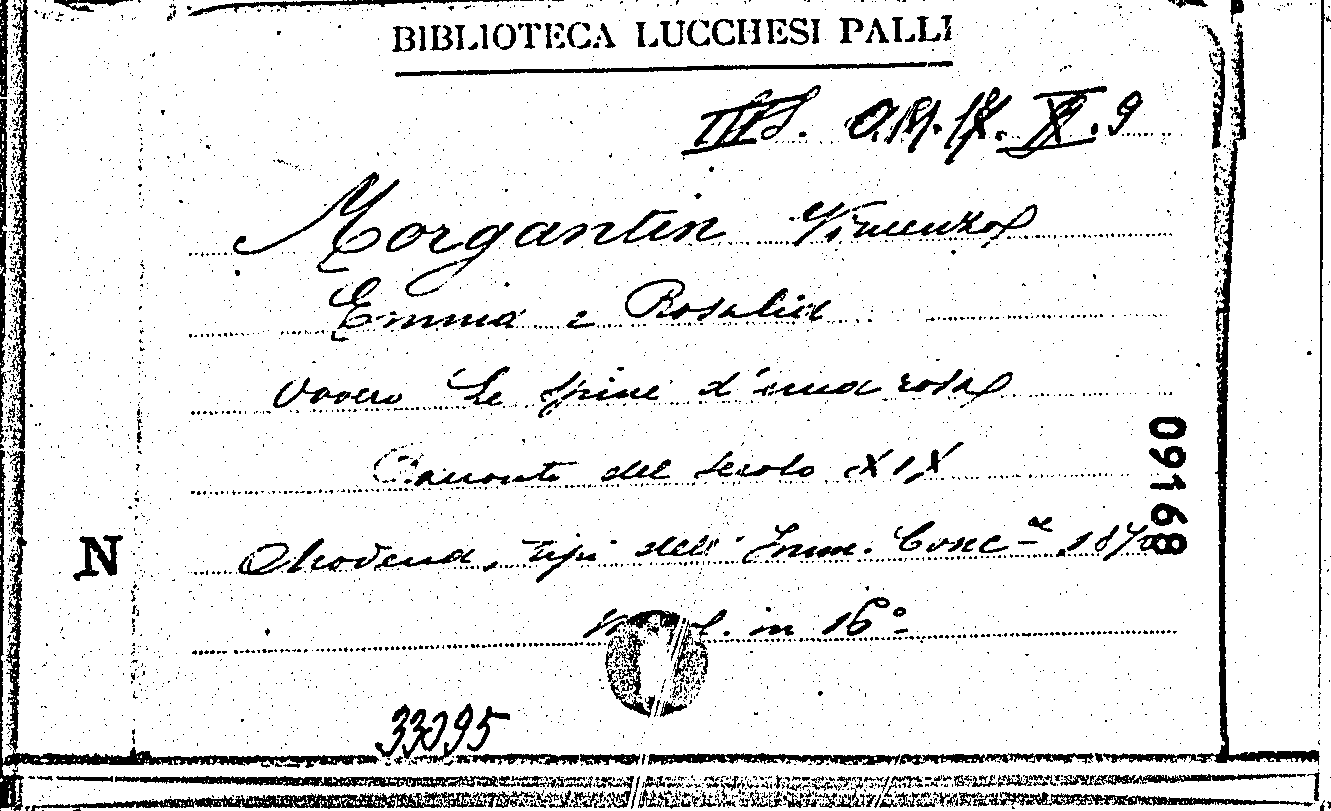 BIBLIOTECA LUCCHESI PALLI
9
Morgantin Vincenzo
Emma e Rosalia
ovvero Le spine d'una rosa
Racconto del secolo XIX
Modena, tipi dell' Imm. Conc.
in 16°
33095
N
09168